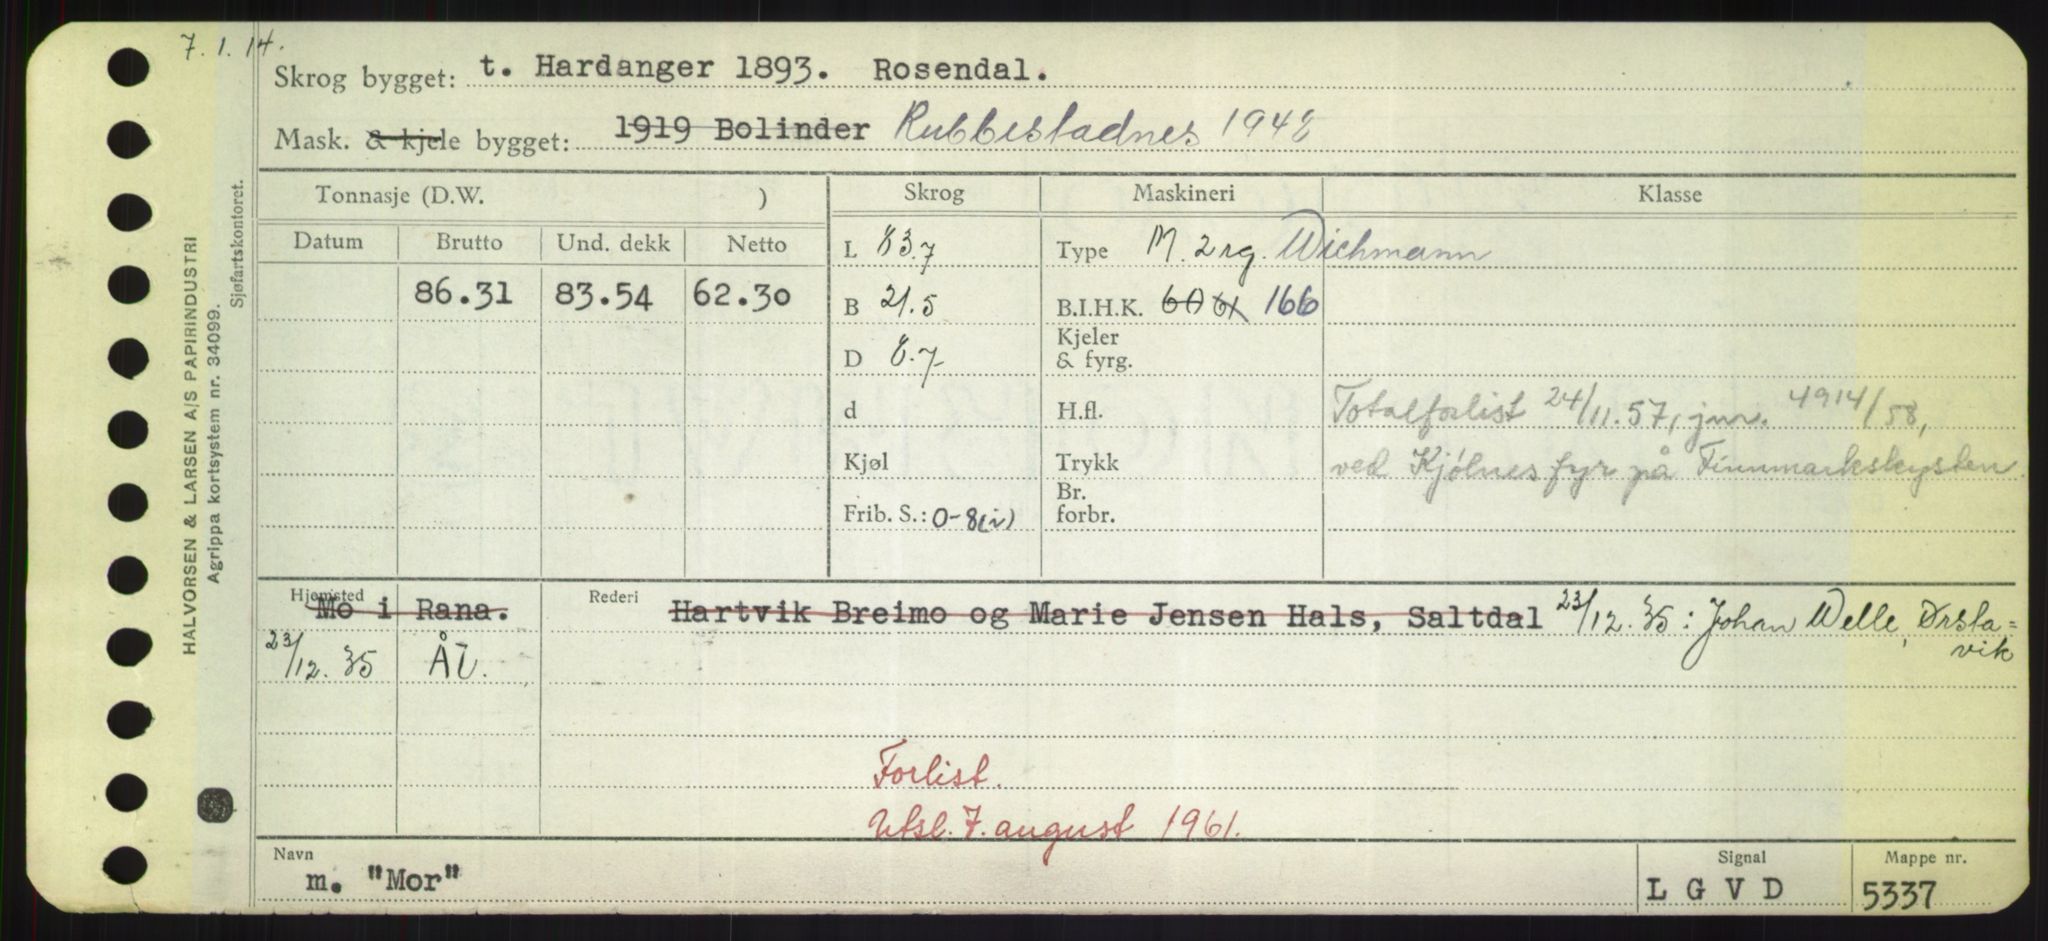 7.1.14.
Skrog bygget: t. Hardanger 1893. Rosendal.
Mask. & kjele bygget: 1919 Bolinder Rubbestadnes 1948
Tonnasje (D.W. ) Skrog Maskineri Klasse
Datum Brutto Und. dekk Netto
L 83.7 Type M. 2 rg. Wichmann
86.31 83.54 62.30
B 21.5 B.I.H.K. 60 61 166
D 8.7 Kjeler & fyrg.
d H.fl. Totalforlist 24/11.57, jnr. 4914/58,
Kjøl Trykk ved Kjølnes fyr på Finnmarkskysten
Frib. S.: 0-8(i) Br. forbr.
Hjemsted Rederi
Mo i Rana. Hartvik Breimo og Marie Jensen Hals, Saltdal 23/12.35: Johan Welle, Ørsta=
vik
23/12.35 ÅL.
Forlist.
Utsl. 7. august 1961.
Navn Signal Mappe nr.
m. "Mor" LGVD 5337
HALVORSEN & LARSEN A/S PAPIRINDUSTRI
Agrippa kortsystem nr. 34099.
Sjøfartskontoret.